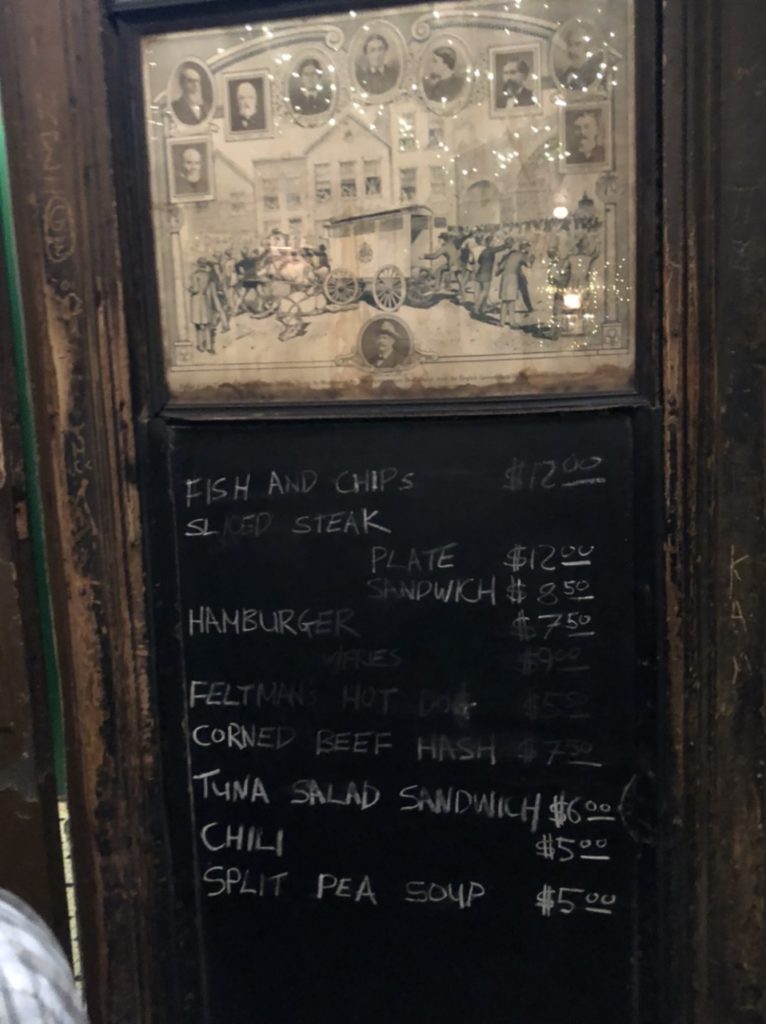 FISH AND CHIPS $12.00
SLICED STEAK
PLATE $12.00
SANDWICH $8.50
HAMBURGER $7.50
W/FRIES $9.00
FELTMAN'S HOT DOG $5.00
CORNED BEEF HASH $7.50
TUNA SALAD SANDWICH $6.00
CHILI $5.00
SPLIT PEA SOUP $5.00